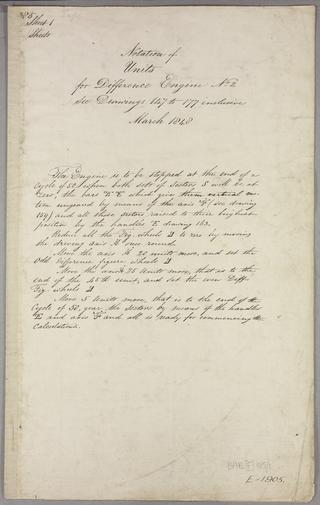 Sheet 1
Sheets
Notation of
Units
for Difference Engine No 2
See Drawings 147 to 177 inclusive
March 1848
The Engine is to be stopped at the end of a
Cycle of 50; when both sets of Sectors S will be at
Zero, the bars which give them vertical mo-
tion ungeared by means of the axis (see drawing
159) and all these sectors raised to their highest
position by the handles E drawing 163.
Reduce all the Fig. wheels to zero by moving
the driving axis once round
Move the axis 20 units more, and set the
Odd Difference figure wheels
Move the axis 25 Units more, that is to the
end of the 45th unit, and set the even Diff.
Fig. wheels
Move 5 Units more, that is to the end of the
Cycle of 50, gear the Sectors by means of the handles
E and axis F and all is ready for commencing the
calculation.
E-1905.